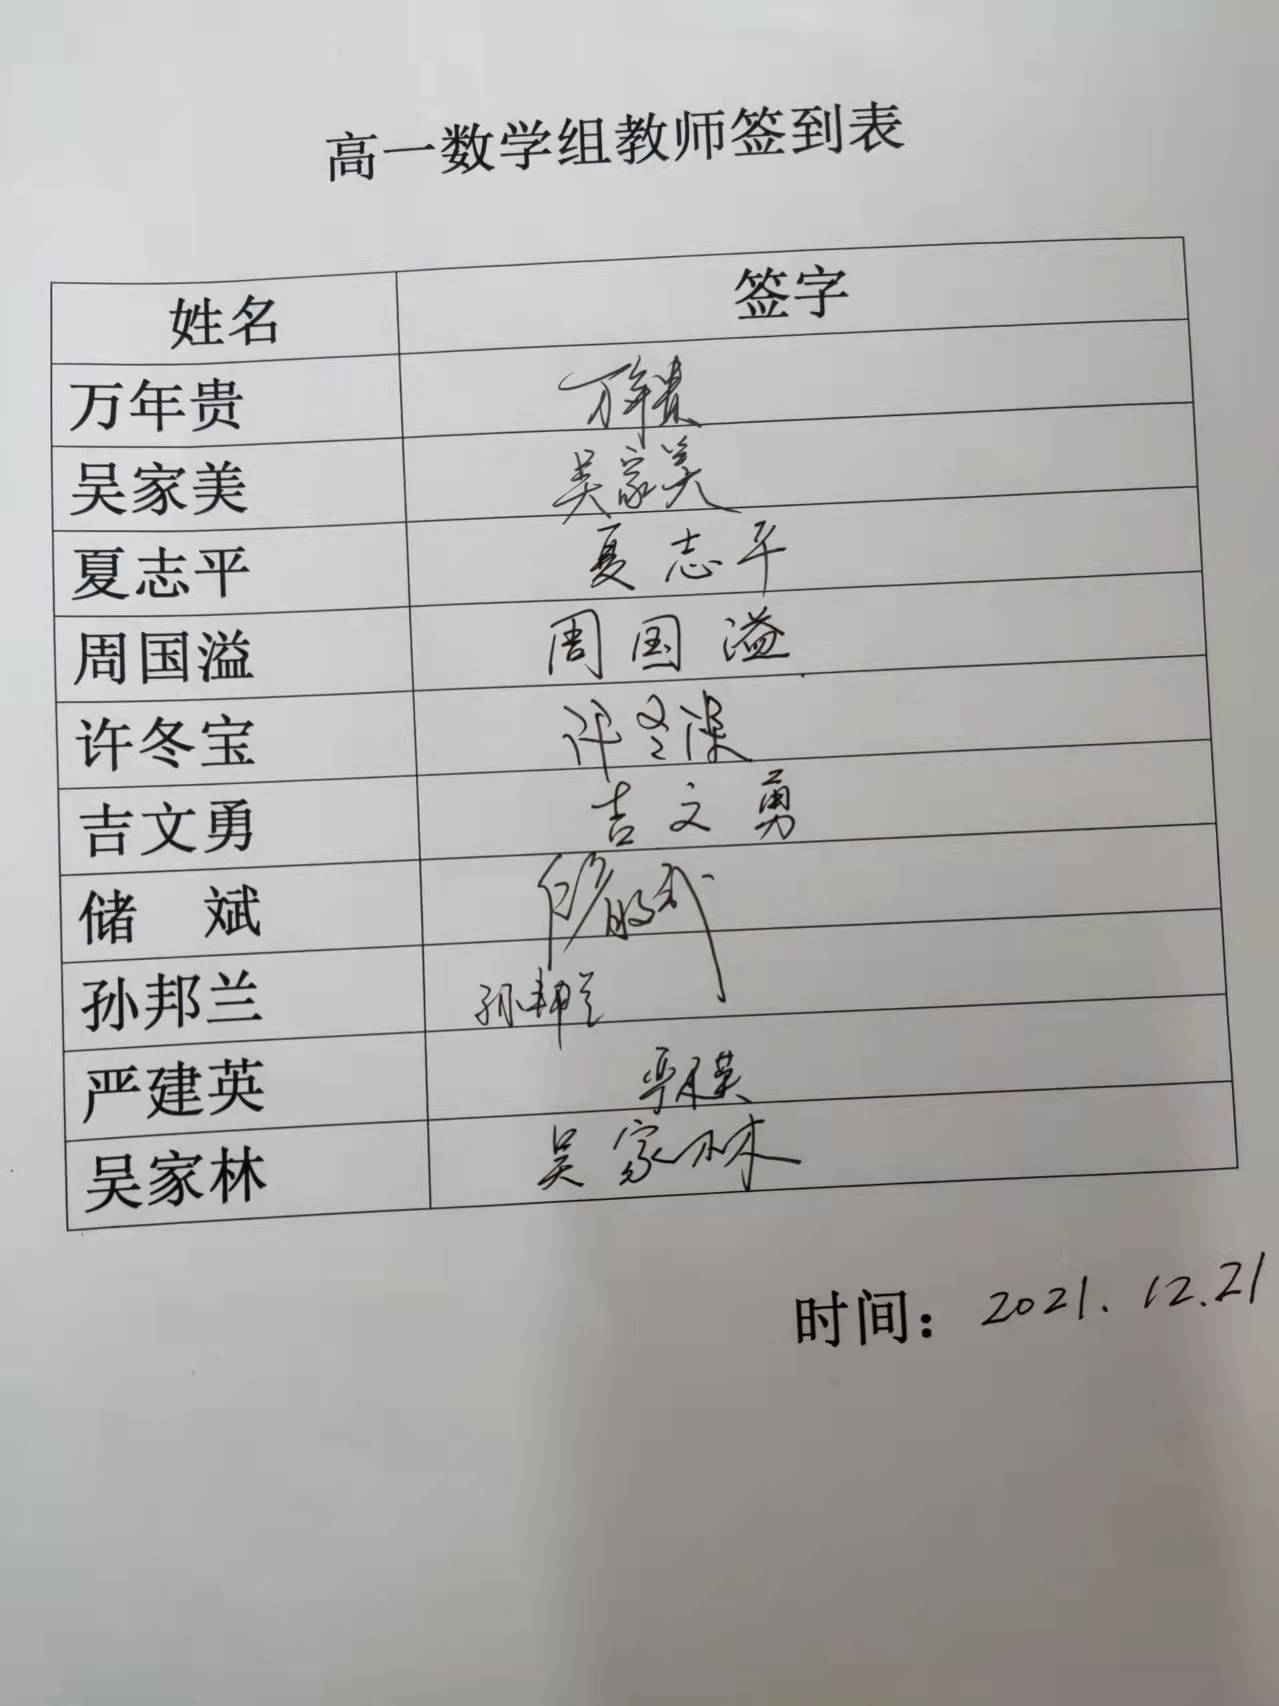 高一数学组教师签到表
姓名 签字
万年贵 万年贵
吴家美 吴家美
夏志平 夏志平
周国溢 周国溢
许冬宝
吉文勇 吉文勇
储 斌
孙邦兰 孙邦兰
严建英
吴家林 吴家林
时间：2021.12.21